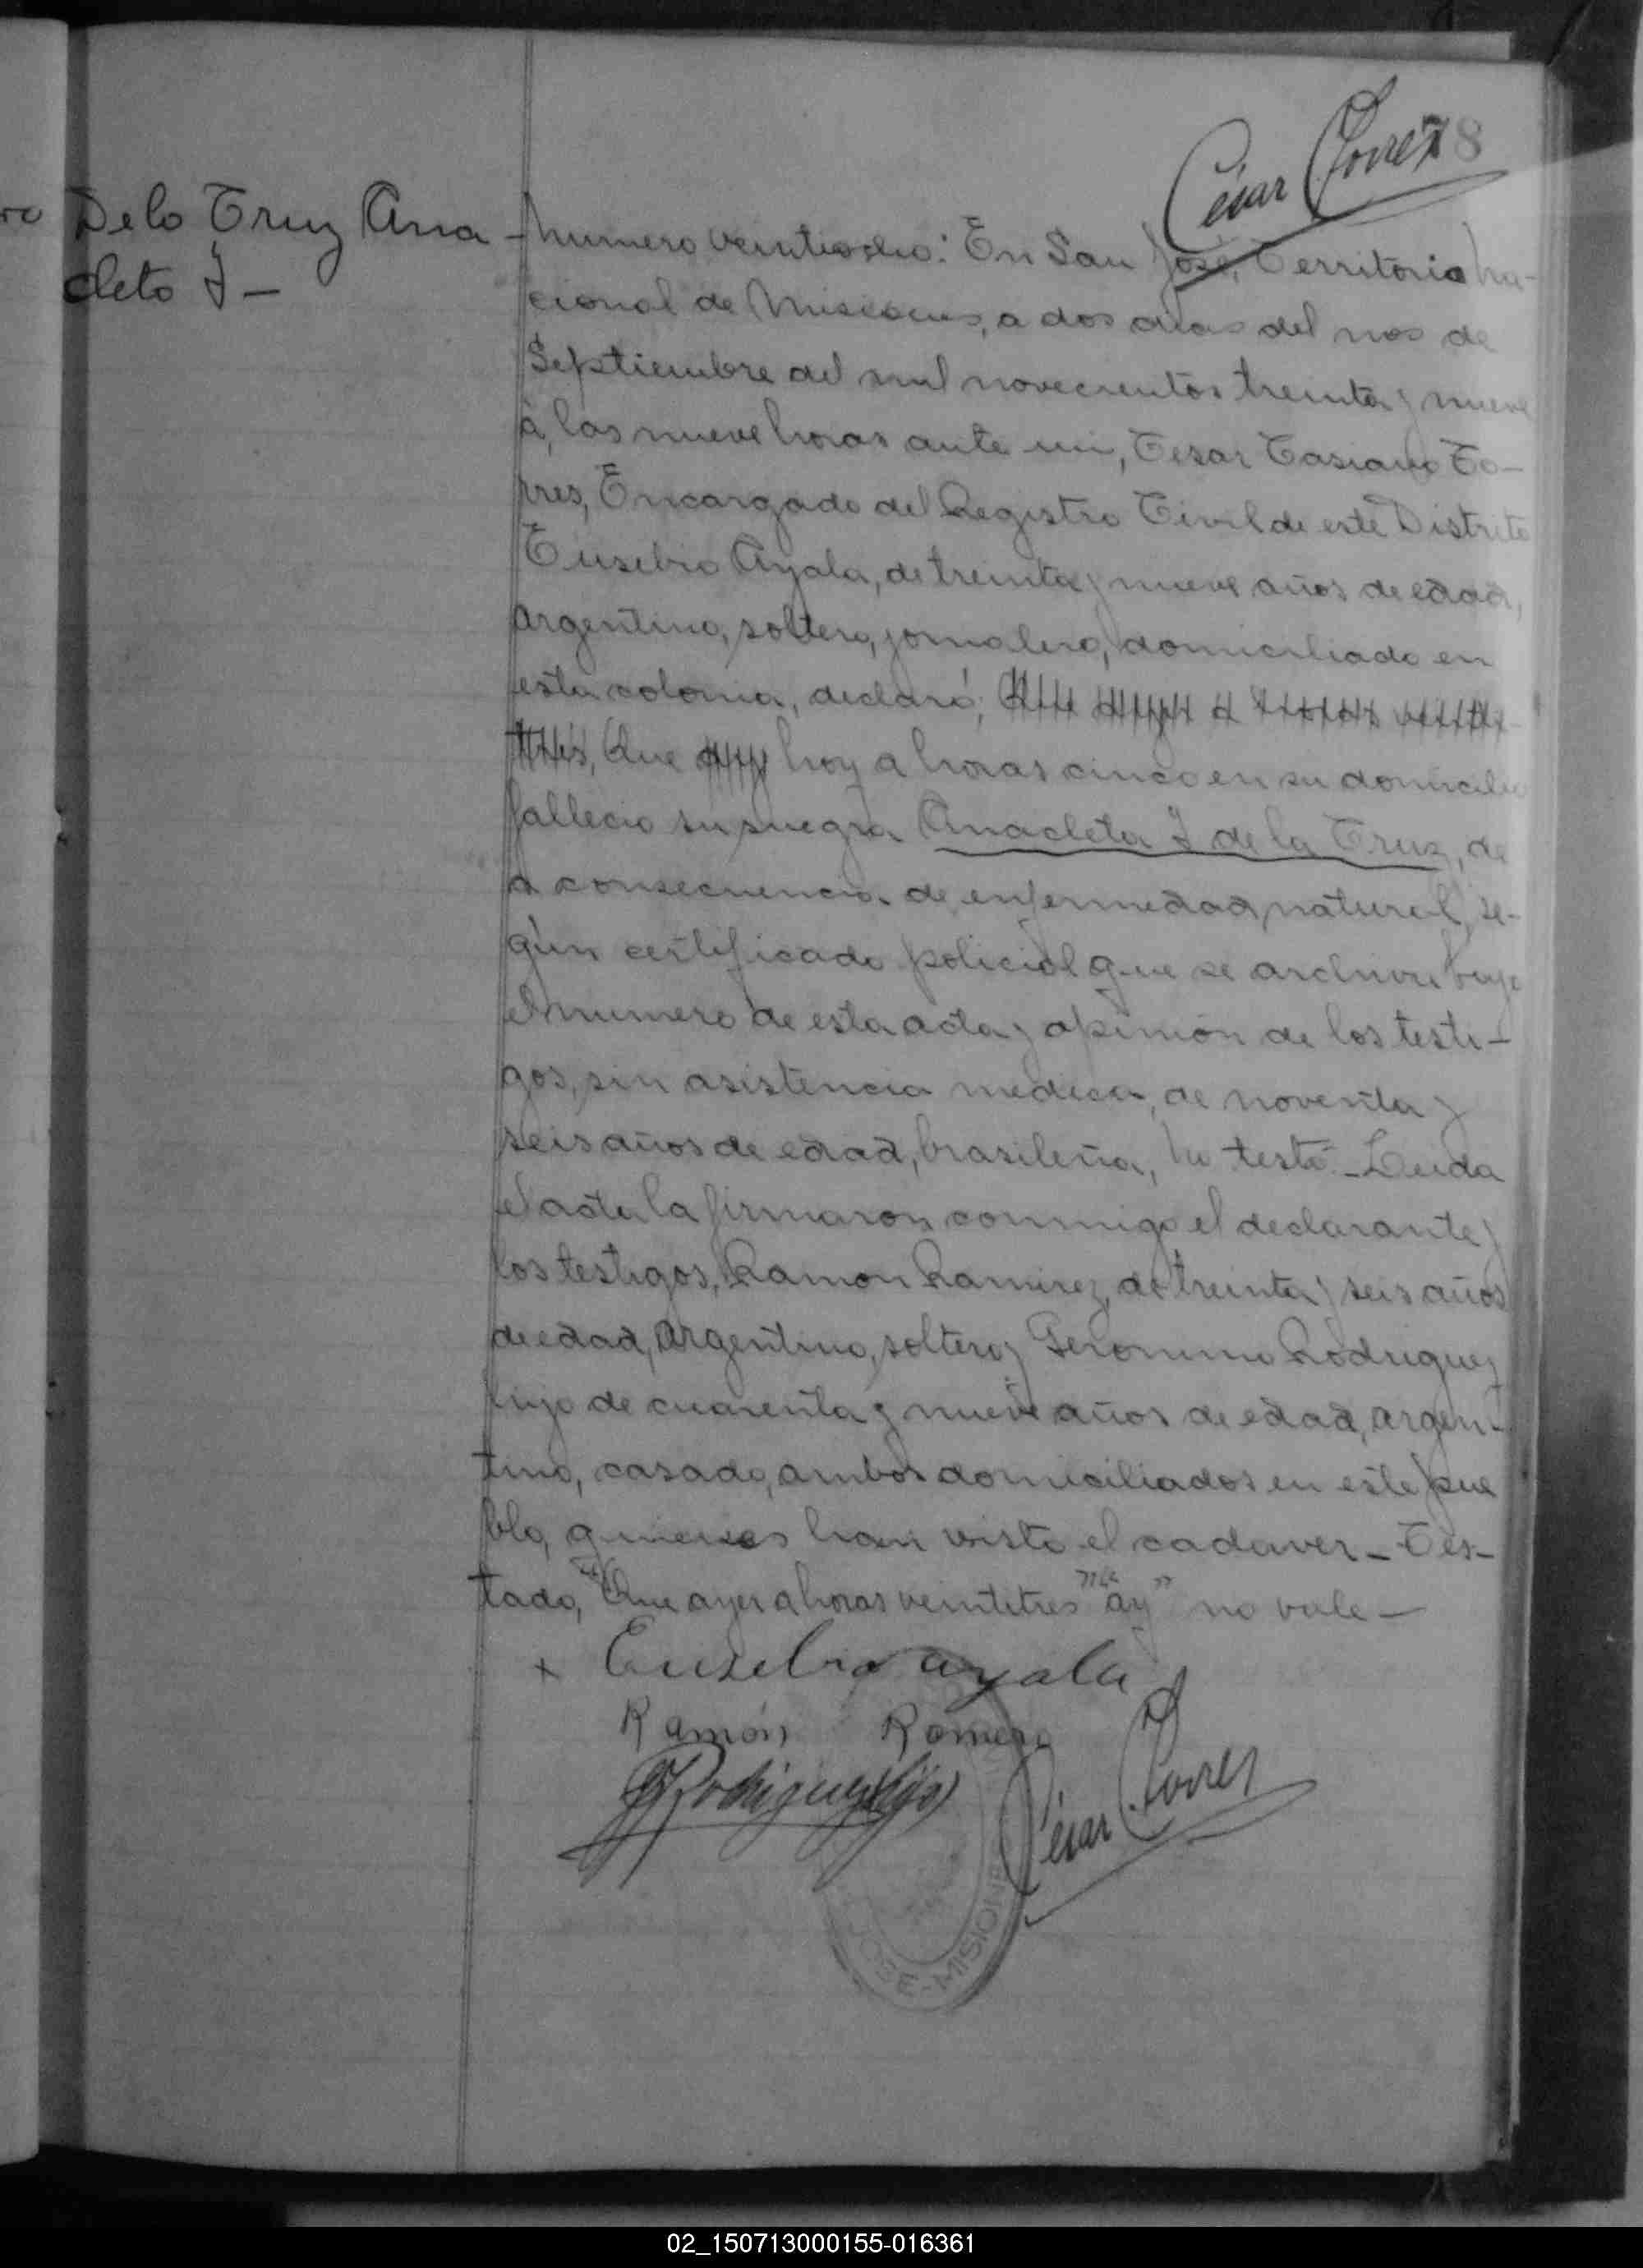 César Torres 78
De la Cruz Ana
cleta I —
Numero veintiocho: En San José, Territorio Na-
cional de Misiones, a dos dias del mes de
Septiembre del mil novecientos treinta y nueve
á, las nueve horas ante mi, Cesar Casiano To-
rres, Encargado del Registro Civil de este Distrito
Eusebio Ayala, de treinta y nueve años de edad,
argentino, soltero, jornalero, domiciliado en
esta colonia, declaró; Que ayer a horas veinti-
trés, Que ay hoy a horas cinco en su domicilio
fallecio su suegra Anacleta I de la Cruz, de
a consecuencia de enfermedad natural, se-
gún certificado policial que se archiva bajo
el numero de esta acta y opinión de los testi-
gos, sin asistencia medica, de noventa y
seis años de edad, brasileña, No testó. - Leida
el acta la firmaron conmigo el declarante y
los testigos, Ramon Ramirez, de treinta y seis años
de edad, argentino, soltero y Geronimo Rodriguez
hijo de cuarenta y nueve años de edad, argen-
tino, casado, ambos domiciliados en este pue
blo, quienes han visto el cadaver - Tes-
tado, "Que ayer a horas veintitres" "ay" no vale —
x Euzebio ayala
Ramón Romero
GRodriguez (hijo)
César Torres
JOSE - MISIONES
02_150713000155-016361